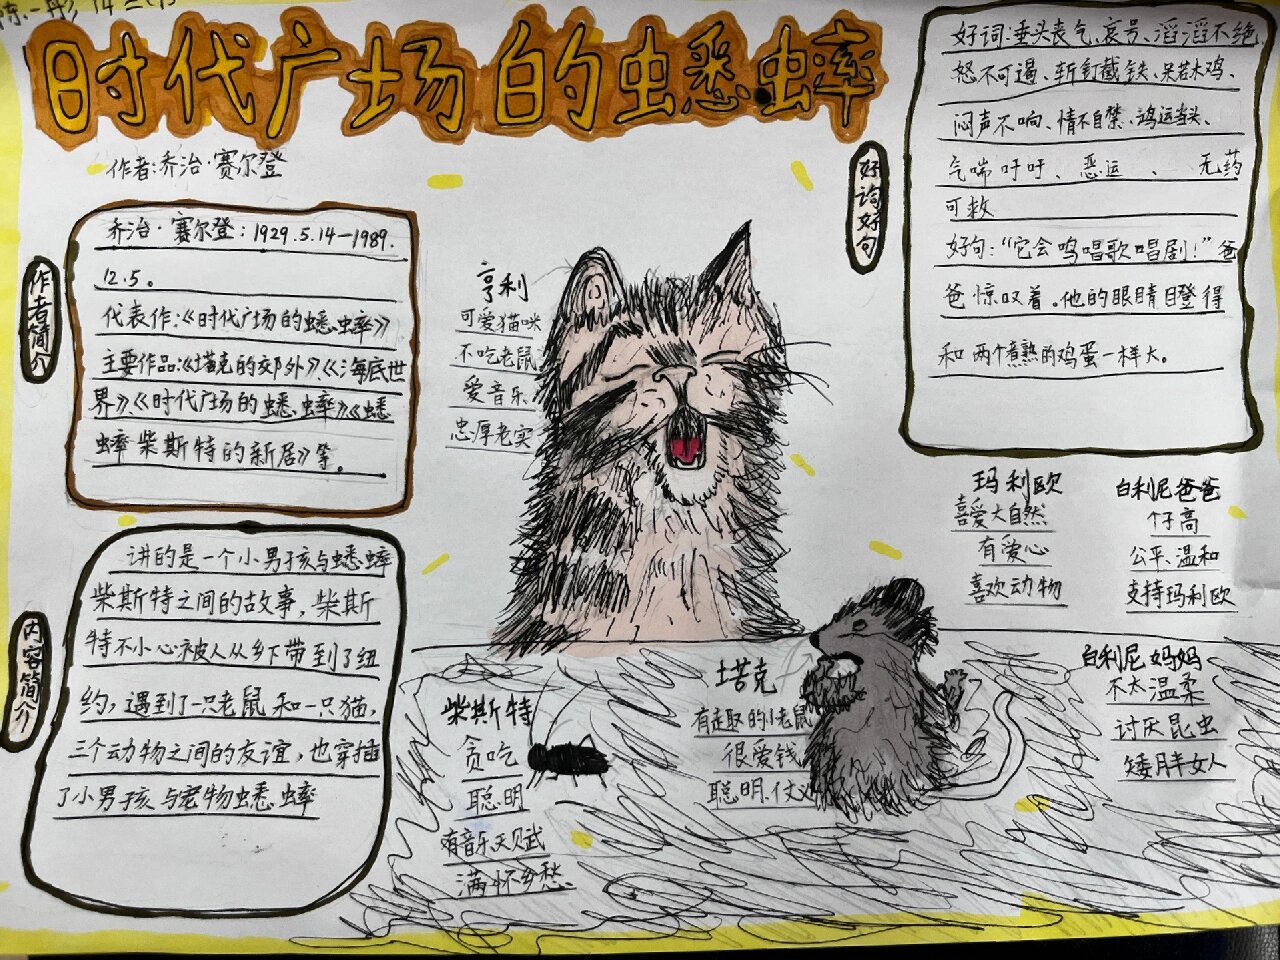 时代广场的蟋蟀
作者:乔治·赛尔登
作者简介
乔治·赛尔登:1929.5.14—1989.
12.5。
代表作:《时代广场的蟋蟀》
主要作品:《塔克的郊外》、《海底世
界》、《时代广场的蟋蟀》《蟋
蟀柴斯特的新居》等。
内容简介
讲的是一个小男孩与蟋蟀
柴斯特之间的故事,柴斯
特不小心被人从乡下带到了纽
约,遇到了一只老鼠和一只猫,
三个动物之间的友谊,也穿插
了小男孩与宠物蟋蟀
亨利
可爱猫咪
不吃老鼠
爱音乐
忠厚老实
好词好句
好词:垂头丧气、哀号、滔滔不绝、
怒不可遏、斩钉截铁、呆若木鸡、
闷声不响、情不自禁、鸿运当头、
气喘吁吁、恶运、无药
可救
好句:“它会鸣唱歌唱剧!”爸
爸惊叹着。他的眼睛瞪得
和两个煮熟的鸡蛋一样大。
玛利欧
喜爱大自然
有爱心
喜欢动物
白利尼爸爸
个子高
公平、温和
支持玛利欧
白利尼妈妈
不太温柔
讨厌昆虫
矮胖女人
柴斯特
贪吃
聪明
有音乐天赋
满怀乡愁
塔克
有趣的小老鼠
很爱钱
聪明、仗义